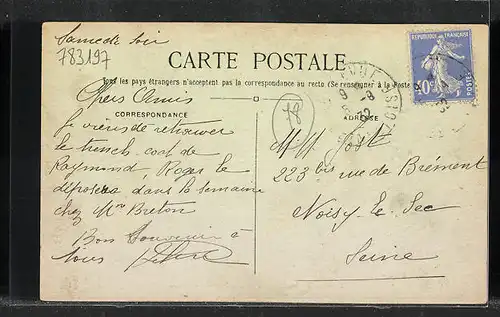 Samedi soir
783197
CARTE POSTALE
Tous les pays étrangers n'acceptent pas la correspondance au recto (Se renseigner à la Poste
CORRESPONDANCE
ADRESSE
Chers Amis
Je viens de retrouver
le trench-coat de
Raymond, Roger le
déposera dans la semaine
chez Mme Breton
Bon Souvenir à
tous
78
M. M.
223 bis rue de Brément
Noisy-le-Sec
Seine
REPUBLIQUE FRANÇAISE
POSTES